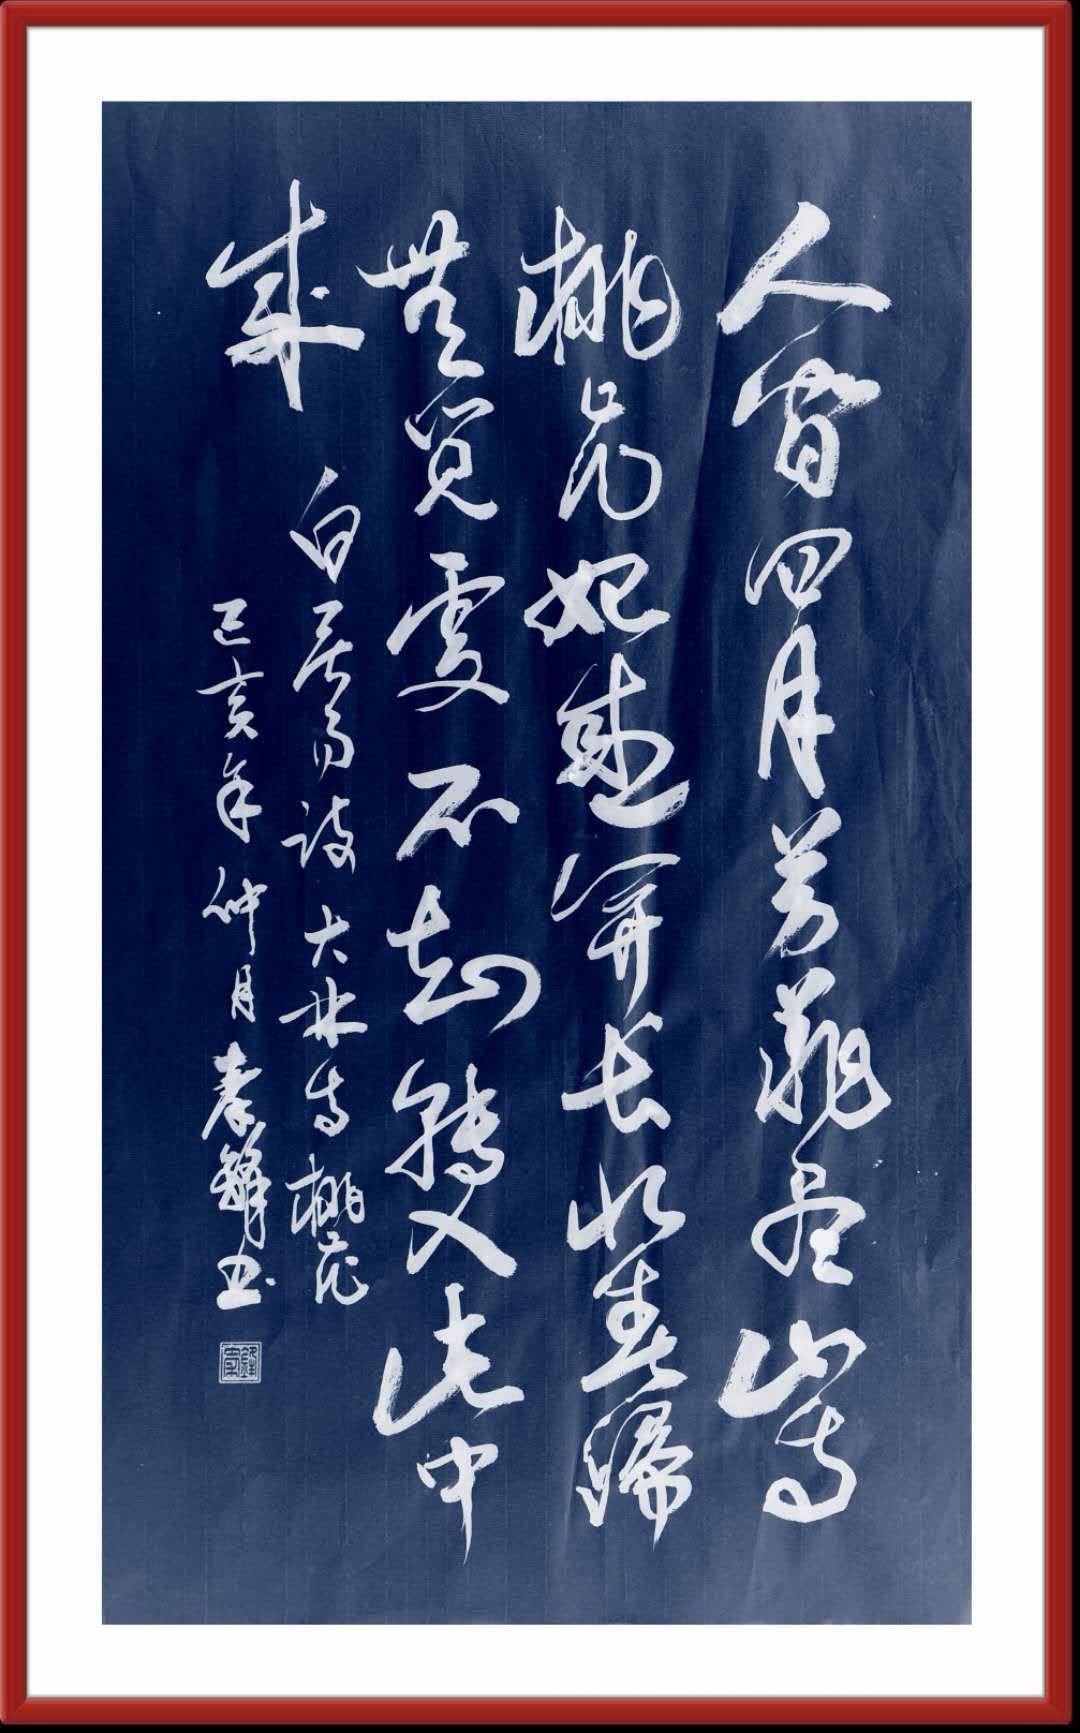 人間四月芳菲尽山寺
桃花始盛開长恨春歸
無觅處不知转入此中
來
白居易诗 大林寺桃花
己亥年仲月 秦鋒书